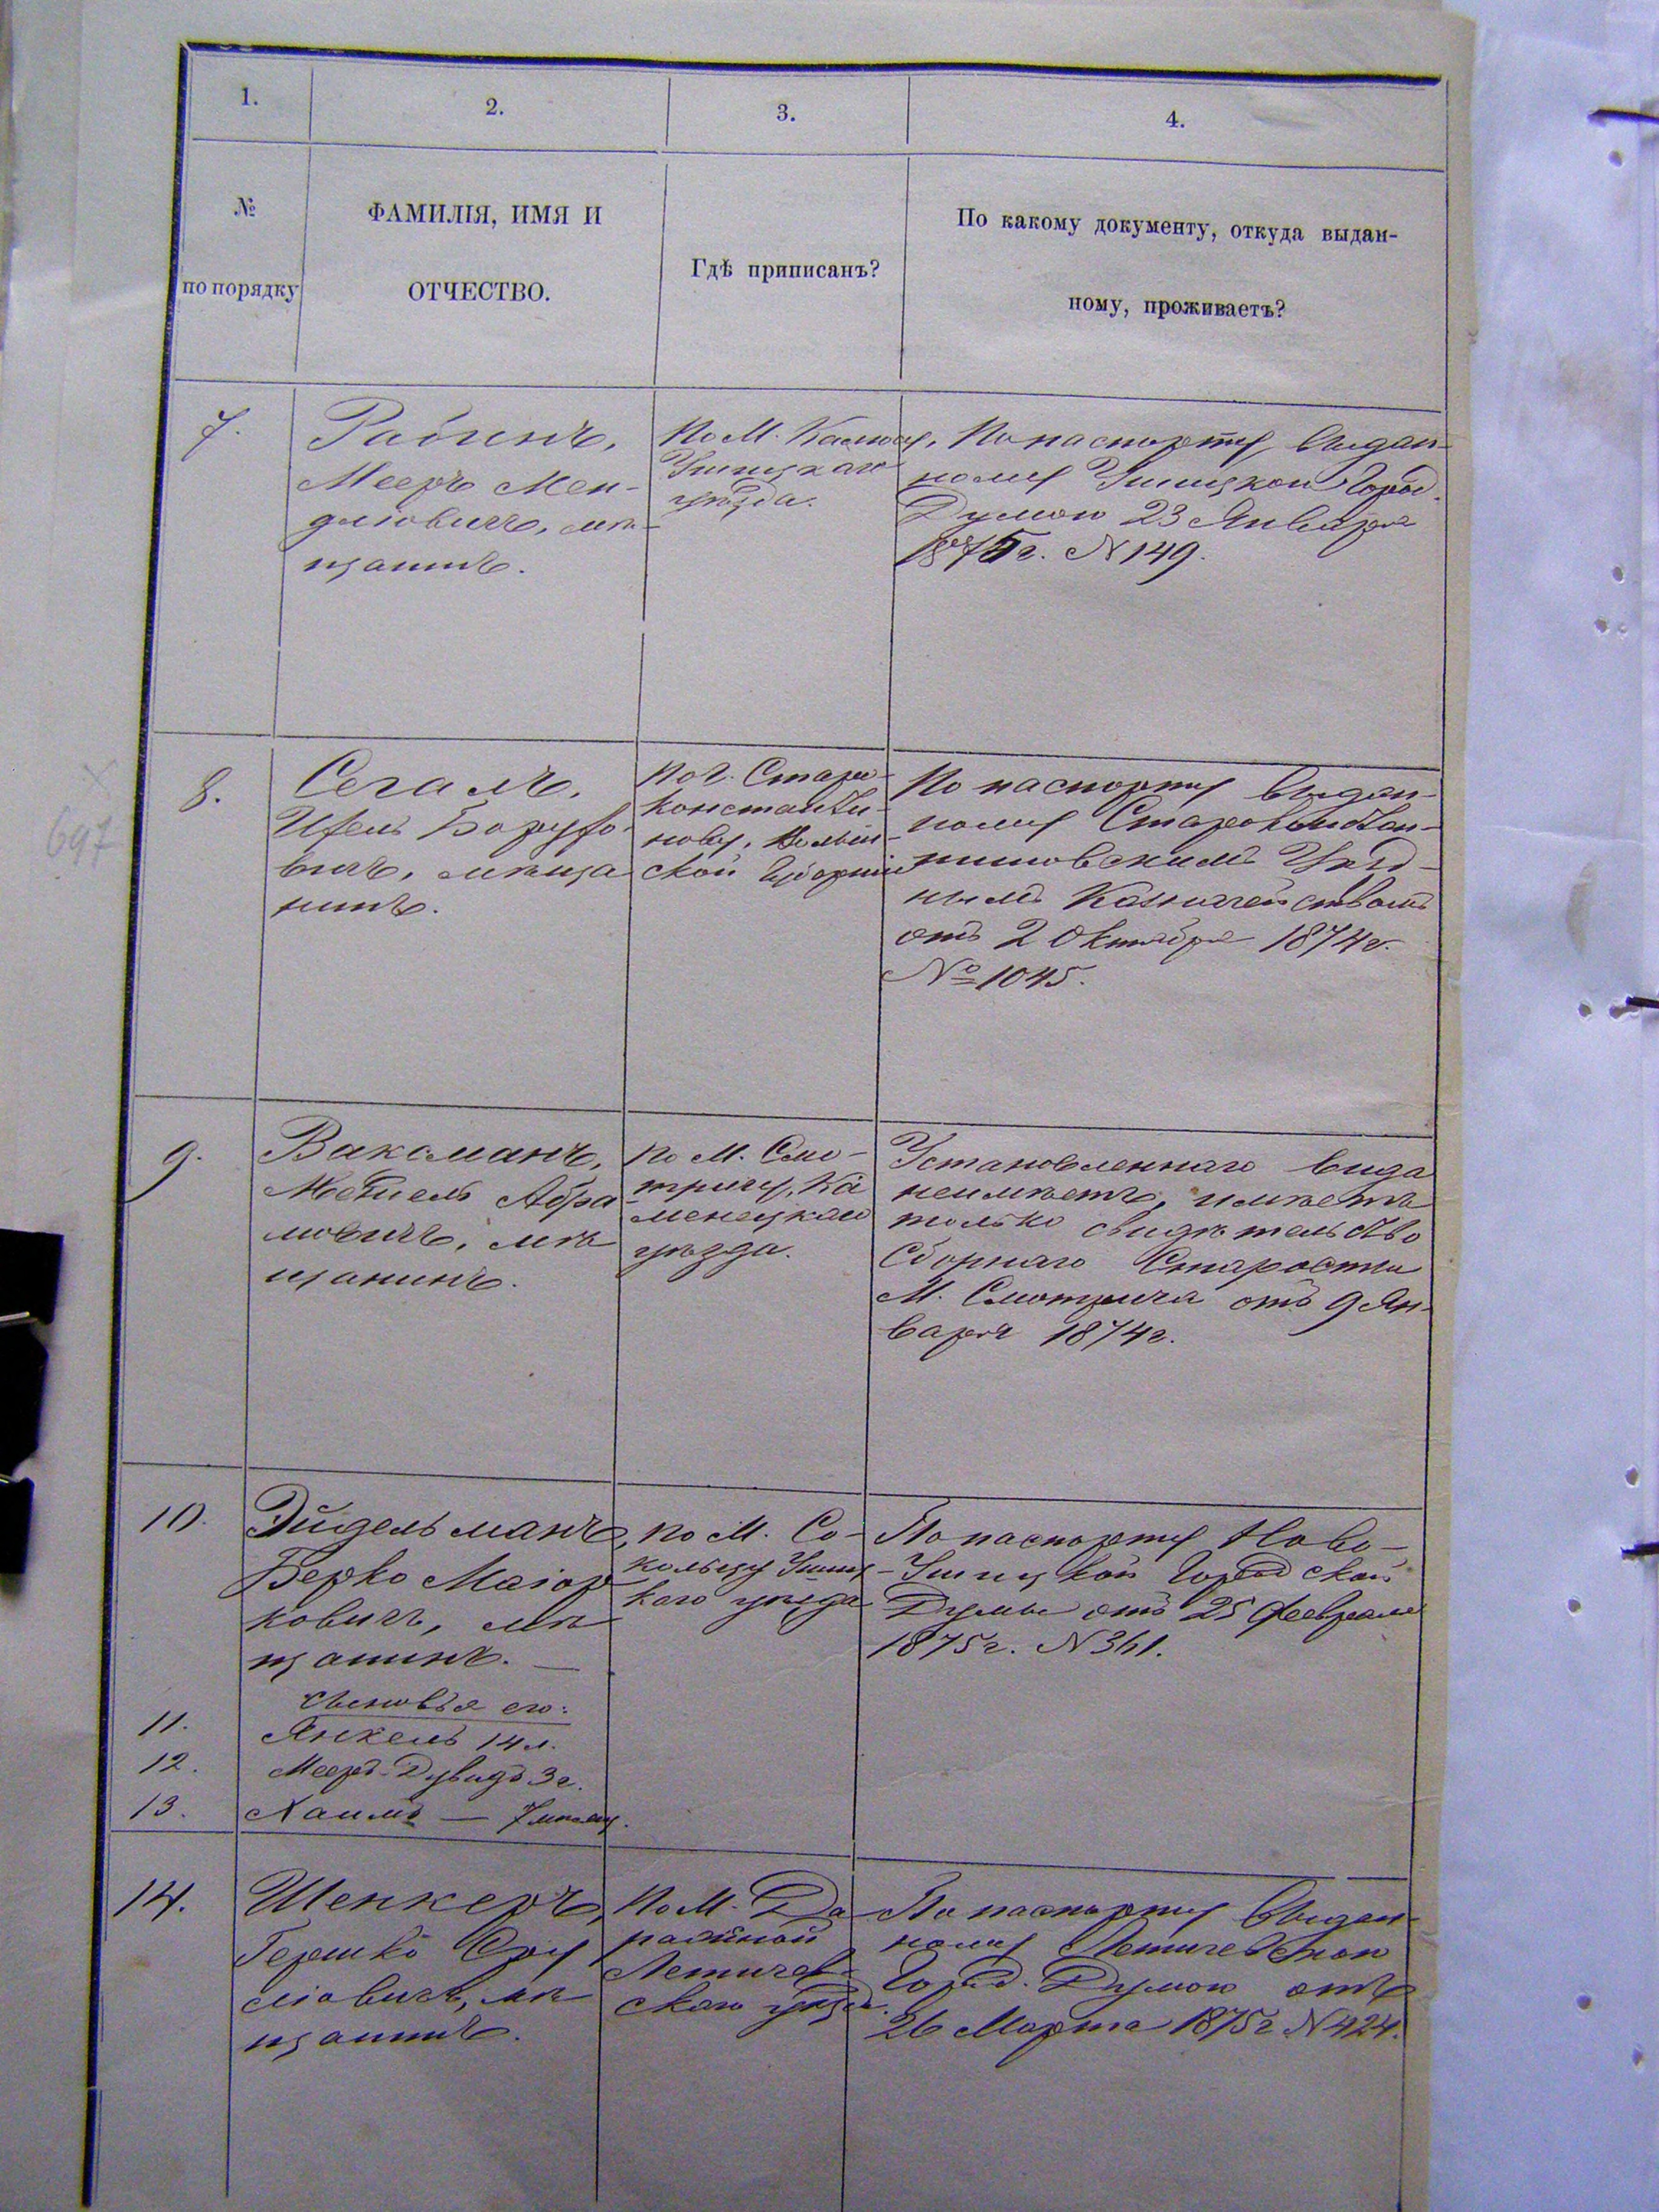 1.
2.
3.
4.
№
по порядку
ФАМИЛІЯ, ИМЯ И
ОТЧЕСТВО.
Гдѣ приписанъ?
По какому документу, откуда выдан-
ному, проживаетъ?
7.
Рабинъ,
Мееръ Мен-
длiовичъ, мѣ-
щанинъ.
По М. Калюсу,
Ушицкаго
уѣзда.
По паспорту, выдан-
ному Ушицкою Город.
Думою 23 Января
1875 г. N 149.
8.
Сегалъ,
Боруфо-
вичъ, мѣща
нинъ.
по г. Старо-
константи-
нову, Волын-
ской Губерніи
По паспорту выдан-
ному Старокон­стан-
тиновскимъ Уѣзд-
нымъ Казначействомъ
отъ 2 Октября 1874 г.
№ 1045.
697
9.
Ваксманъ,
Абра
мовичъ, мѣ
щанинъ.
по М. Смо-
тричу, Ка
менецкаго
уѣзда.
Установленнаго вида
неимѣетъ, имѣетъ
только свидѣтельство
Сборнаго Старосты
М. Смотрича отъ 9 Ян-
варя 1874 г.
10.
Эйдельманъ,
Берко Маіор
ковичъ, мѣ
щанинъ. —
сыновья его:
11.
Янкель 14 л.
12.
Мееръ-Дувидъ 3 г.
13.
Хаимъ — 7 мѣсяц.
по М. Со-
кольцу Ушиц-
каго уѣзда
По паспорту Ново-
Ушицкой Городской
Думы отъ 25 Февраля
1875 г. N 361.
14.
Шенкеръ,
Гершко Сру
лiовичъ, мѣ
щанинъ.
По М. Де
ражной
Летичев-
скаго уѣзда.
По паспорту выдан-
ному Летичевскою
Город. Думою отъ
26 Марта 1875 г. N 424.